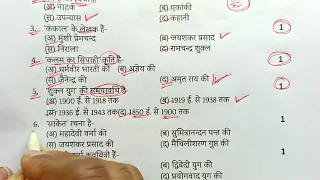 (अ) नाटक (ब) एकांकी
(स) उपन्यास (द) कहानी
3. 'कंकाल' के लेखक हैं- 1
(अ) मुंशी प्रेमचन्द (ब) जयशंकर प्रसाद
(स) निराला (द) रामचन्द्र शुक्ल
4. 'कलम का सिपाही' कृति है- 1
(अ) धर्मवीर भारती की (ब) अज्ञेय की
(स) जैनेन्द्र की (द) अमृत राय की
5. 'शुक्ल युग' की समयावधि है- 1
(अ) 1900 ई. से 1918 तक (ब) 1919 ई. से 1938 तक
(स) 1936 ई. से 1943 तक (द) 1850 ई. से 1900 तक
6. 'साकेत' रचना है- 1
(अ) महादेवी वर्मा की (ब) सुमित्रानन्दन पन्त की
(स) जयशंकर प्रसाद की (द) मैथिलीशरण गुप्त की
(ब) द्विवेदी युग की
(द) प्रयोगवाद युग की